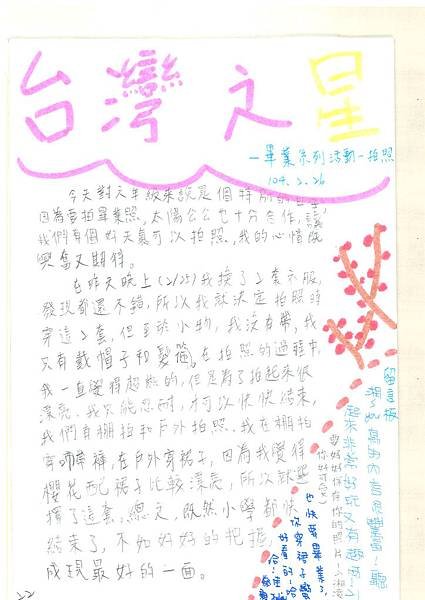 台灣之星
—畢業系列活動—拍照
104.2.26
今天對六年級來說是個特別的日子,
因為要拍畢業照,太陽公公也十分合作,讓
我們有個好天氣可以拍照,我的心情既
興奮又期待。
在昨天晚上(2/25)我換了2套衣服,
發現都還不錯,所以我就決定拍照時
穿這2套,但至於小物,我沒有帶,我
只有戴帽子和髮箍。在拍照的過程中,
我一直覺得超燃的,但是為了拍起來很
漂亮,我只能忍耐,才可以快快結束,
我們有棚拍和戶外拍照,我在棚拍
穿褲,在戶外穿裙子,因為我覺得
櫻花配裙子比較漂亮,所以就選
擇了這套,總之,既然小學都快
結束了,不如好好的把握,
成現最好的一面。
留言板
內容很豐富!聽
起來非常好玩又有趣呀!
要好好保存你的照片
也快要畢業了,
你穿裙子蠻
好看的!哈
哈!
22